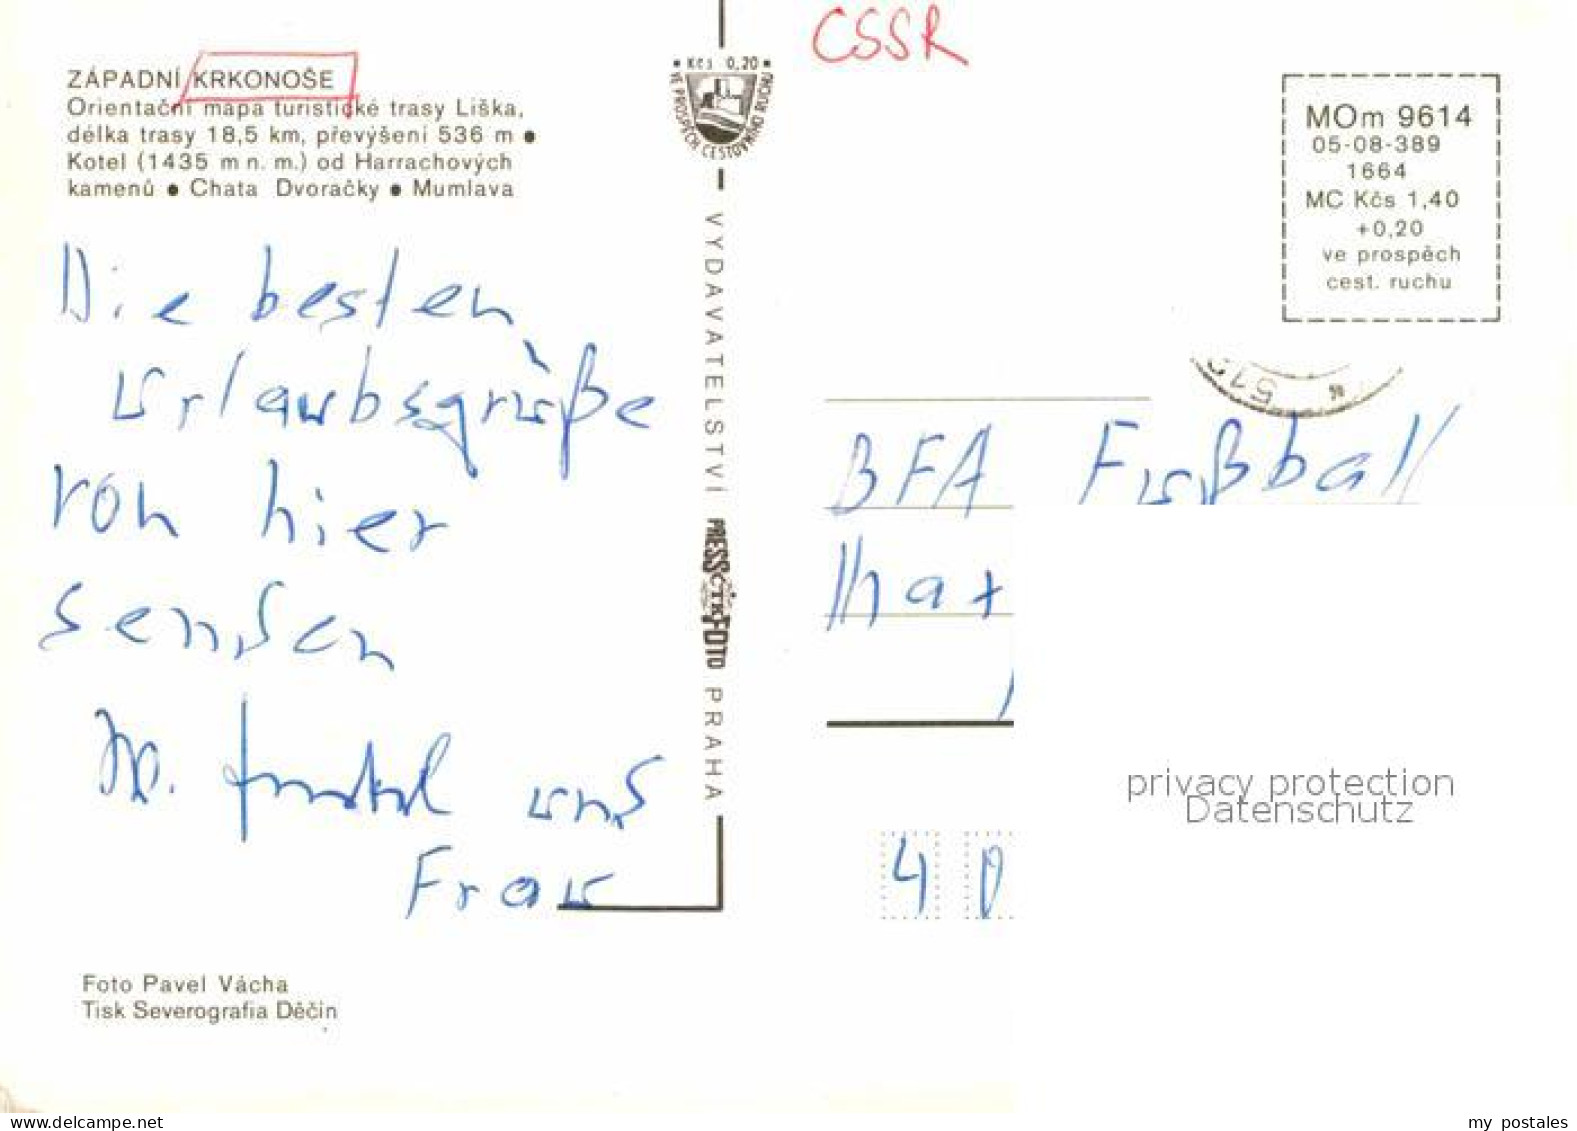 ZÁPADNÍ KRKONOŠE
Orientační mapa turistické trasy Liška,
délka trasy 18,5 km, převýšení 536 m ●
Kotel (1435 m n. m.) od Harrachových
kamenů ● Chata Dvoračky ● Mumlava
Die besten
Urlaubsgrüße
von hier
senden
W. und
Frau
Foto Pavel Vácha
Tisk Severografia Děčín
• Kčs 0,20 •
VE PROSPĚCH CESTOVNÍHO RUCHU
VYDAVATELSTVÍ PRESSFOTO PRAHA
ČTK
CSSR
MOm 9614
05-08-389
1664
MC Kčs 1,40
+0,20
ve prospěch
cest. ruchu
BFA Fußball
40
privacy protection
Datenschutz
www.delcampe.net
my_postales